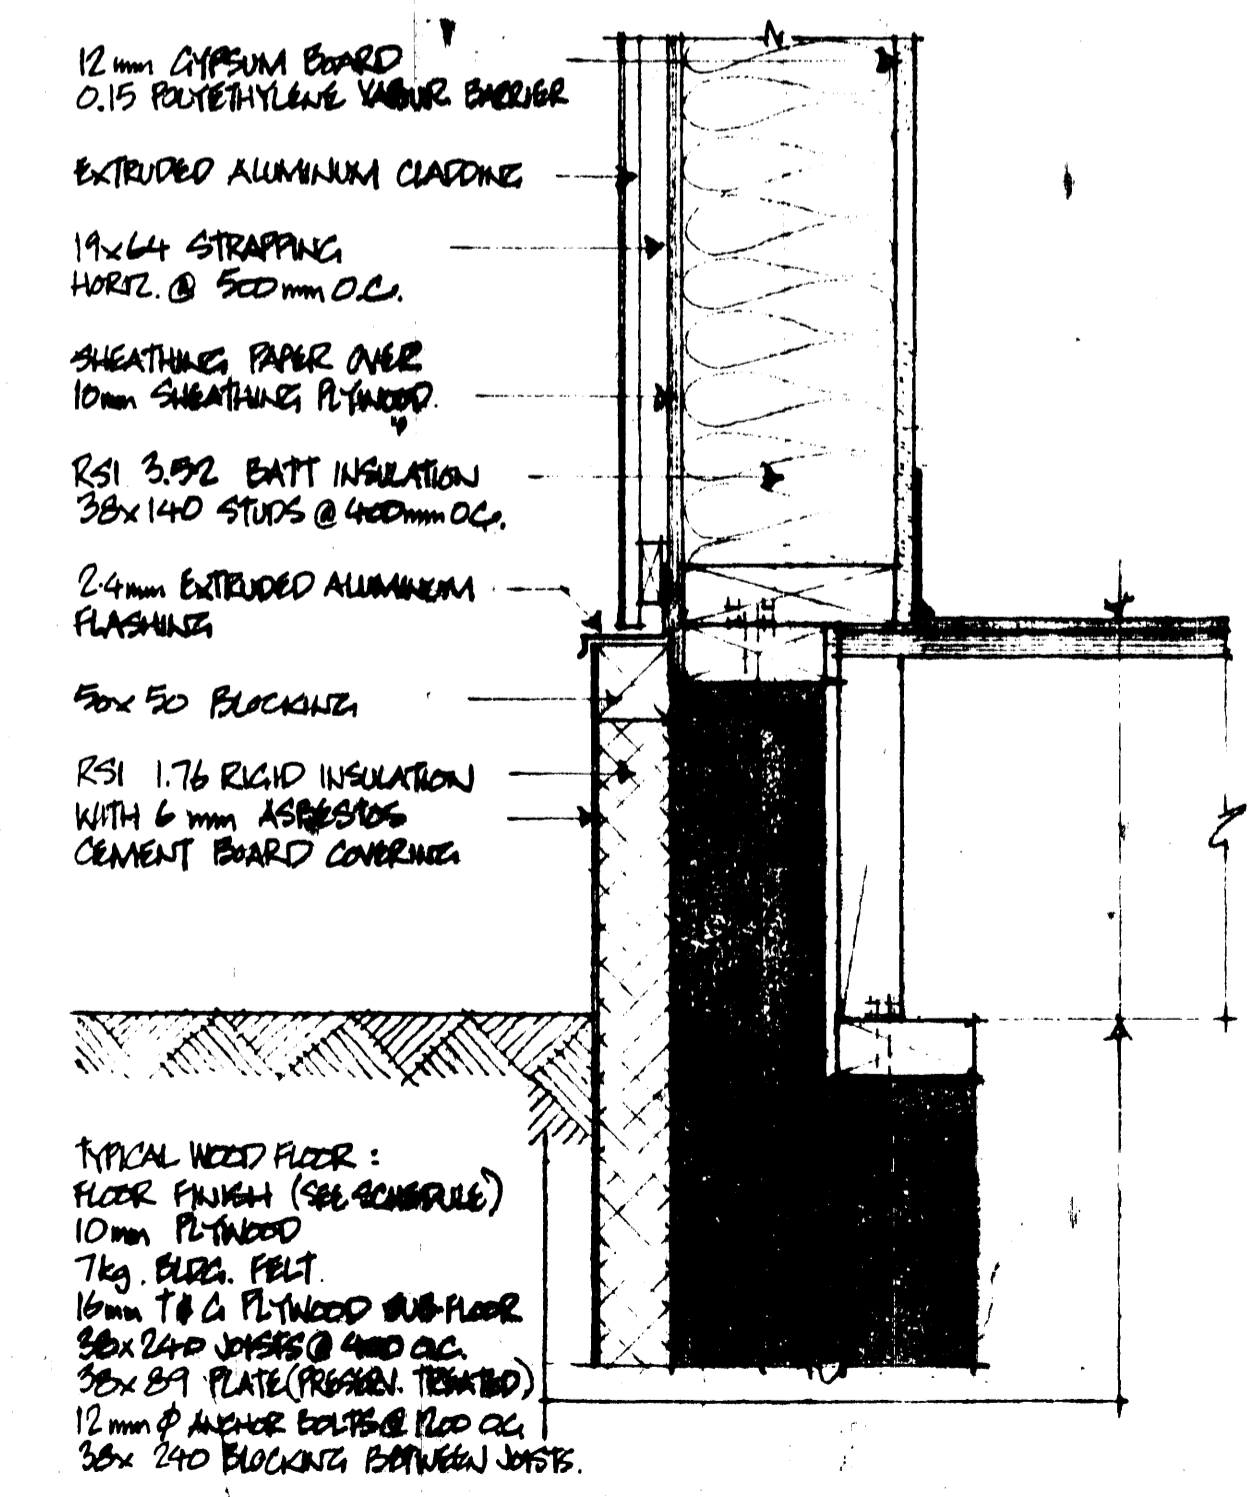 12 mm GYPSUM BOARD
0.15 POLYETHYLENE VAPOUR BARRIER
EXTRUDED ALUMINUM CLADDING
19x64 STRAPPING
HORIZ. @ 500 mm O.C.
SHEATHING PAPER OVER
10mm SHEATHING PLYWOOD.
RSI 3.52 BATT INSULATION
38x140 STUDS @ 400mm O.C.
2.4mm EXTRUDED ALUMINUM
FLASHING
50x50 BLOCKING
RSI 1.76 RIGID INSULATION
WITH 6 mm ASBESTOS
CEMENT BOARD COVERING
TYPICAL WOOD FLOOR :
FLOOR FINISH (SEE SCHEDULE)
10mm PLYWOOD
7kg. BLDG. FELT.
16mm T & G PLYWOOD SUB-FLOOR
38x240 JOISTS @ 400 O.C.
38x89 PLATE (PRESERV. TREATED)
12 mm φ ANCHOR BOLTS @ 1200 O.C.
38x 240 BLOCKING BETWEEN JOISTS.